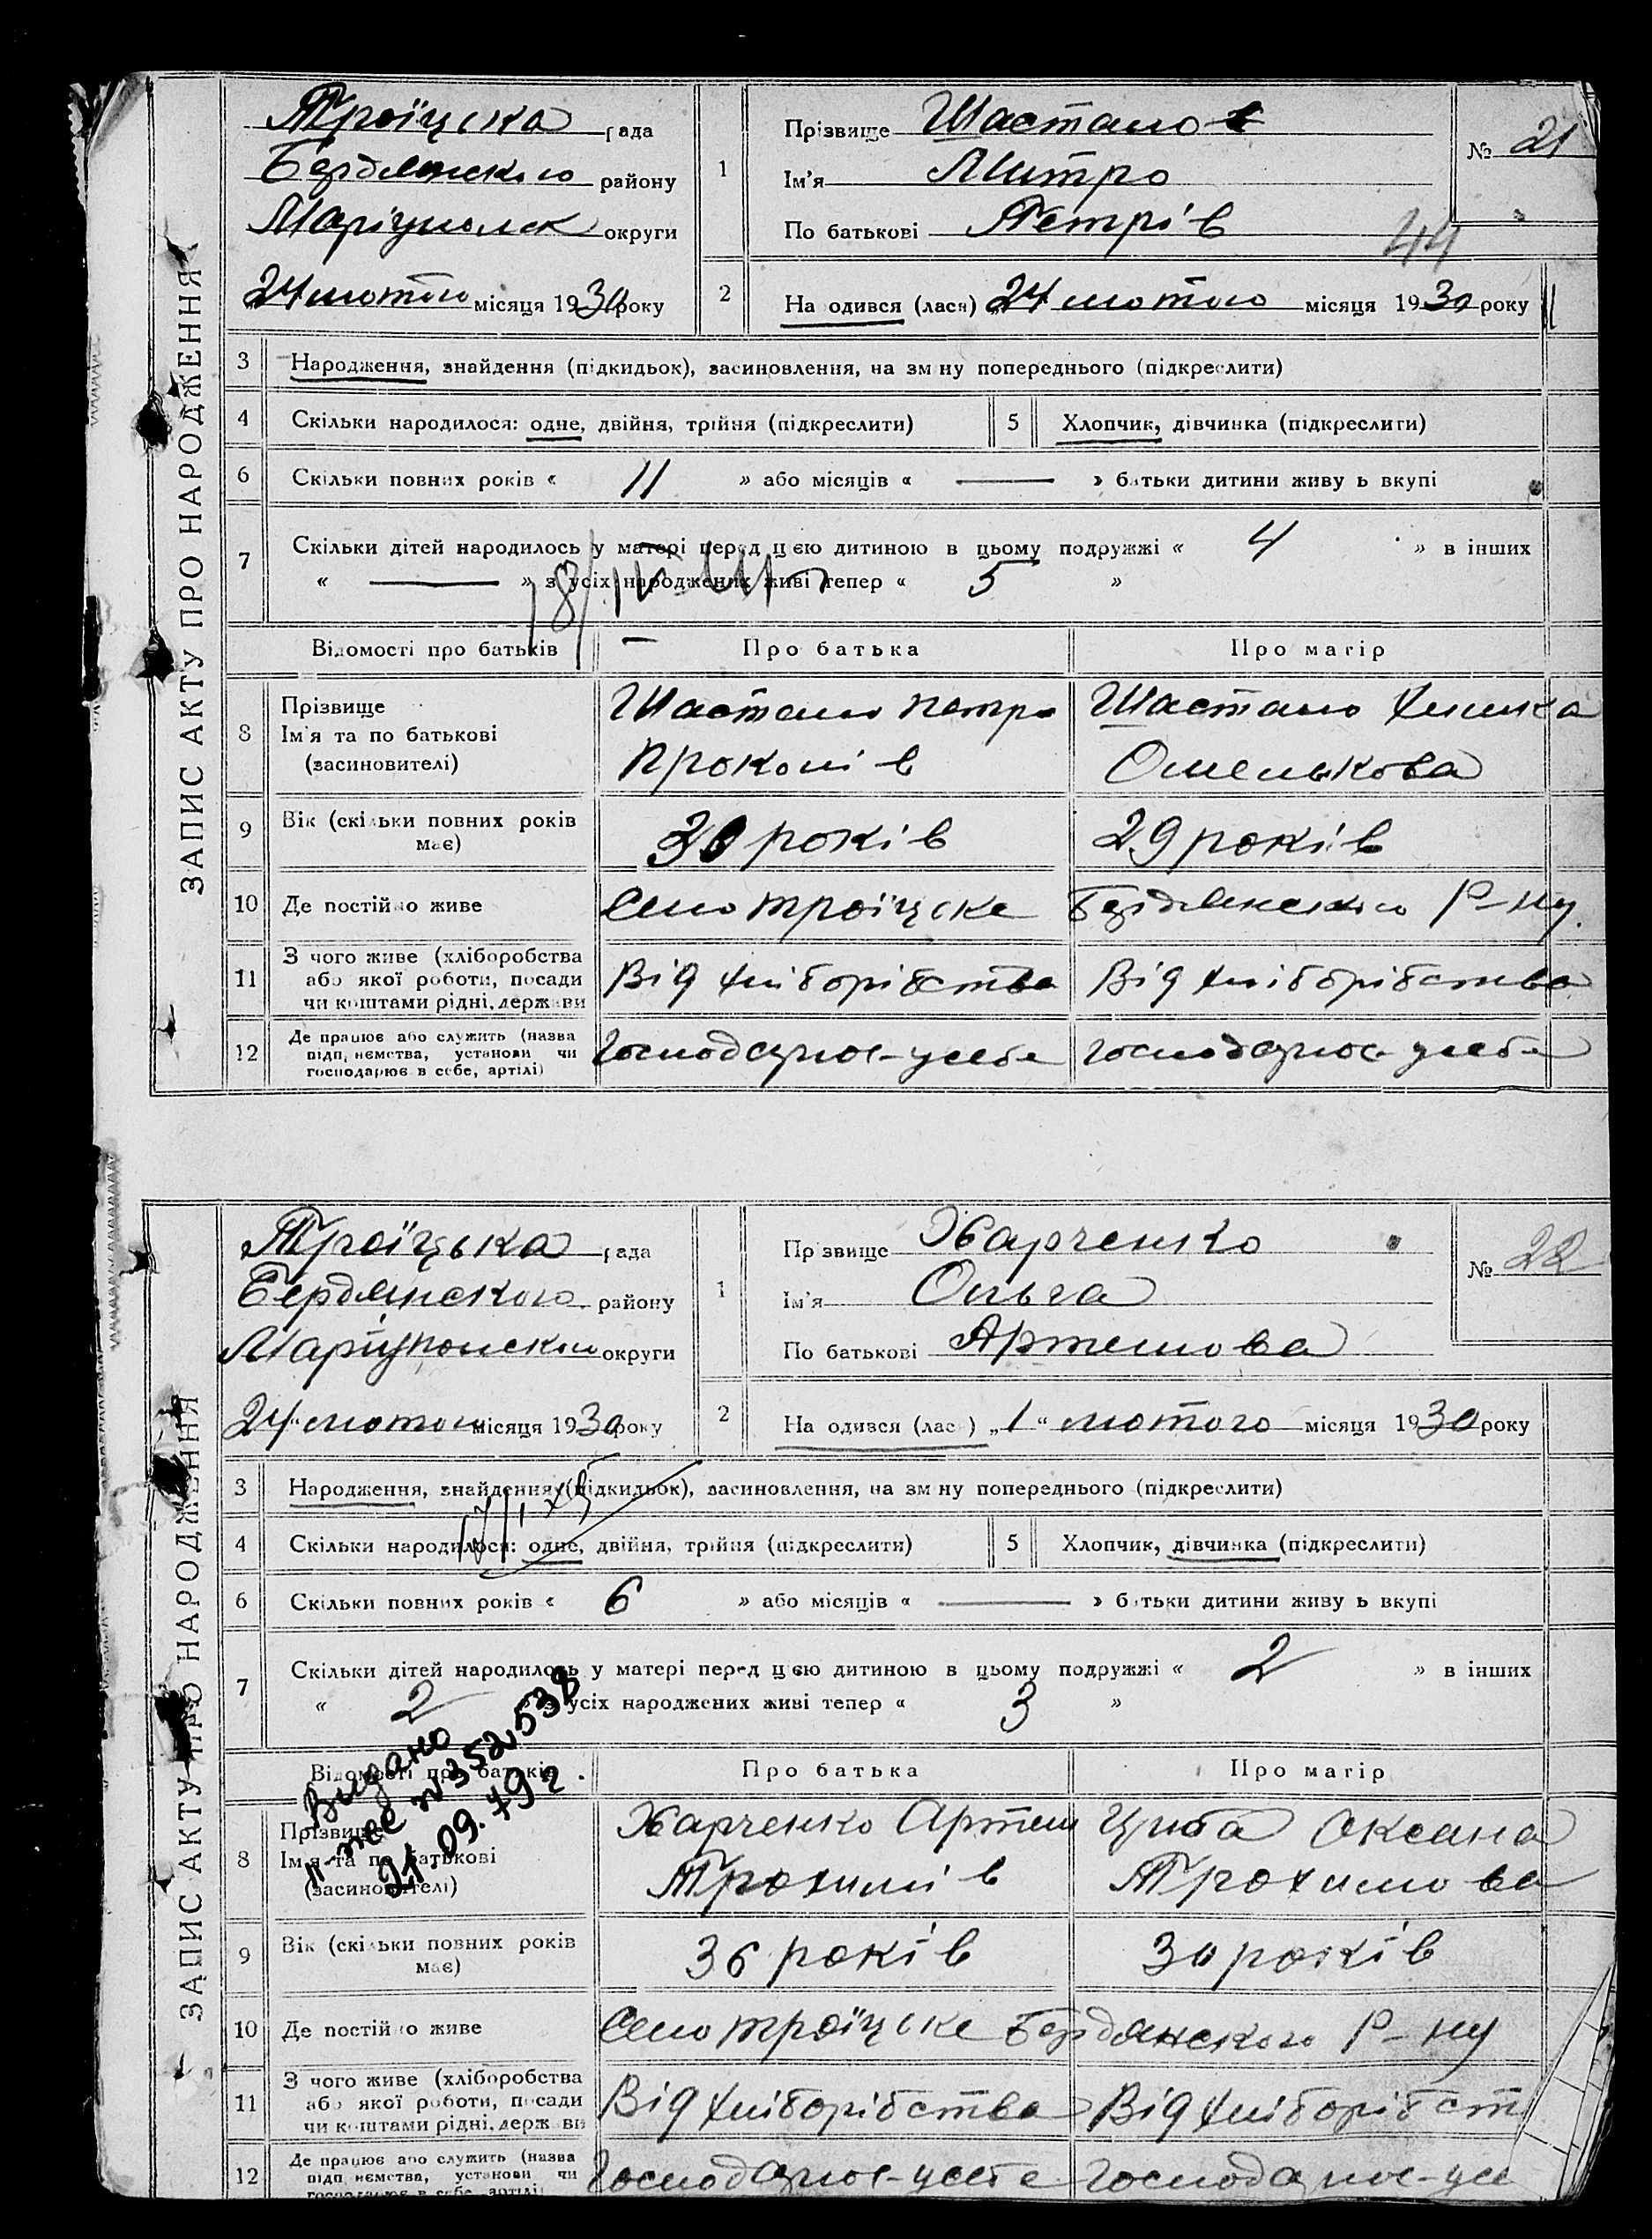 ЗАПИС АКТУ ПРО НАРОДЖЕННЯ
Троїцька рада
Бердянського району
Маріупольск округи
24 лютого місяця 1930 року
1 Прізвище Шастало
Ім'я Митро
По батькові Петрів
№ 21
44
2 На одився (лася) 24 лютого місяця 1930 року
3 Народження, знайдення (підкидьок), засиновлення, на зм ну попереднього (підкреслити)
4 Скільки народилося: одне, двійня, трійня (підкреслити) 5 Хлопчик, дівчинка (підкреслити)
6 Скільки повних років « 11 » або місяців « — » батьки дитини живу ь вкупі
7 Скільки дітей народилось у матері перед цією дитиною в цьому подружжі « 4 » в інших
« — » з усіх народжених живі тепер « 5 »
Відомості про батьків Про батька Про матір
8 Прізвище
Ім'я та по батькові
(засиновителі)
Шастало Петро
Прокопів
Шастало
Омелькова
9 Вік (скільки повних років має) 30 років 29 років
10 Де постійно живе Село Троїцьке Бердянського р-ну.
11 З чого живе (хліборобства
або якої роботи, посади
чи коштами рідні, держави
Від хліборібства Від хліборібства
12 Де працює або служить (назва
підпр иємства, установи чи
господарює в себе, артілі)
Господарює у себе Господарює у себе
ЗАПИС АКТУ ПРО НАРОДЖЕННЯ
Троїцька рада
Бердянського району
Маріупольского округи
24 „ лютого місяця 1930 року
1 Пр звище Харченко
Ім'я Ольга
По батькові Артемова
№ 22
2 На одився (лас ) „1" лютого місяця 1930 року
3 Народження, знайдення (підкидьок), засиновлення, на зм ну попереднього (підкреслити)
4 Скільки народилося: одне, двійня, трійня (підкреслити) 5 Хлопчик, дівчинка (підкреслити)
6 Скільки повних років « 6 » або місяців « — » батьки дитини живу ь вкупі
7 Скільки дітей народилось у матері перед цією дитиною в цьому подружжі « 2 » в інших
« 2 » з усіх народжених живі тепер « 3 »
Выдано
п-тее № 352538
21.09.79 г.
Відомості про батьків Про батька Про матір
8 Прізвище
Ім'я та по батькові
(засиновителі)
Харченко Артем
Трохимів
Циба Оксана
Трохимова
9 Вік (скільки повних років має) 36 років 30 років
10 Де постійно живе Село Троїцьке Бердянского р-ну
11 З чого живе (хліборобства
або якої роботи, посади
чи коштами рідні, держави
Від хліборібства Від хліборібст
12 Де працює або служить (назва
підп иємства, установи чи
господарює в себе, артілі
Господарює у себе Господарює у се